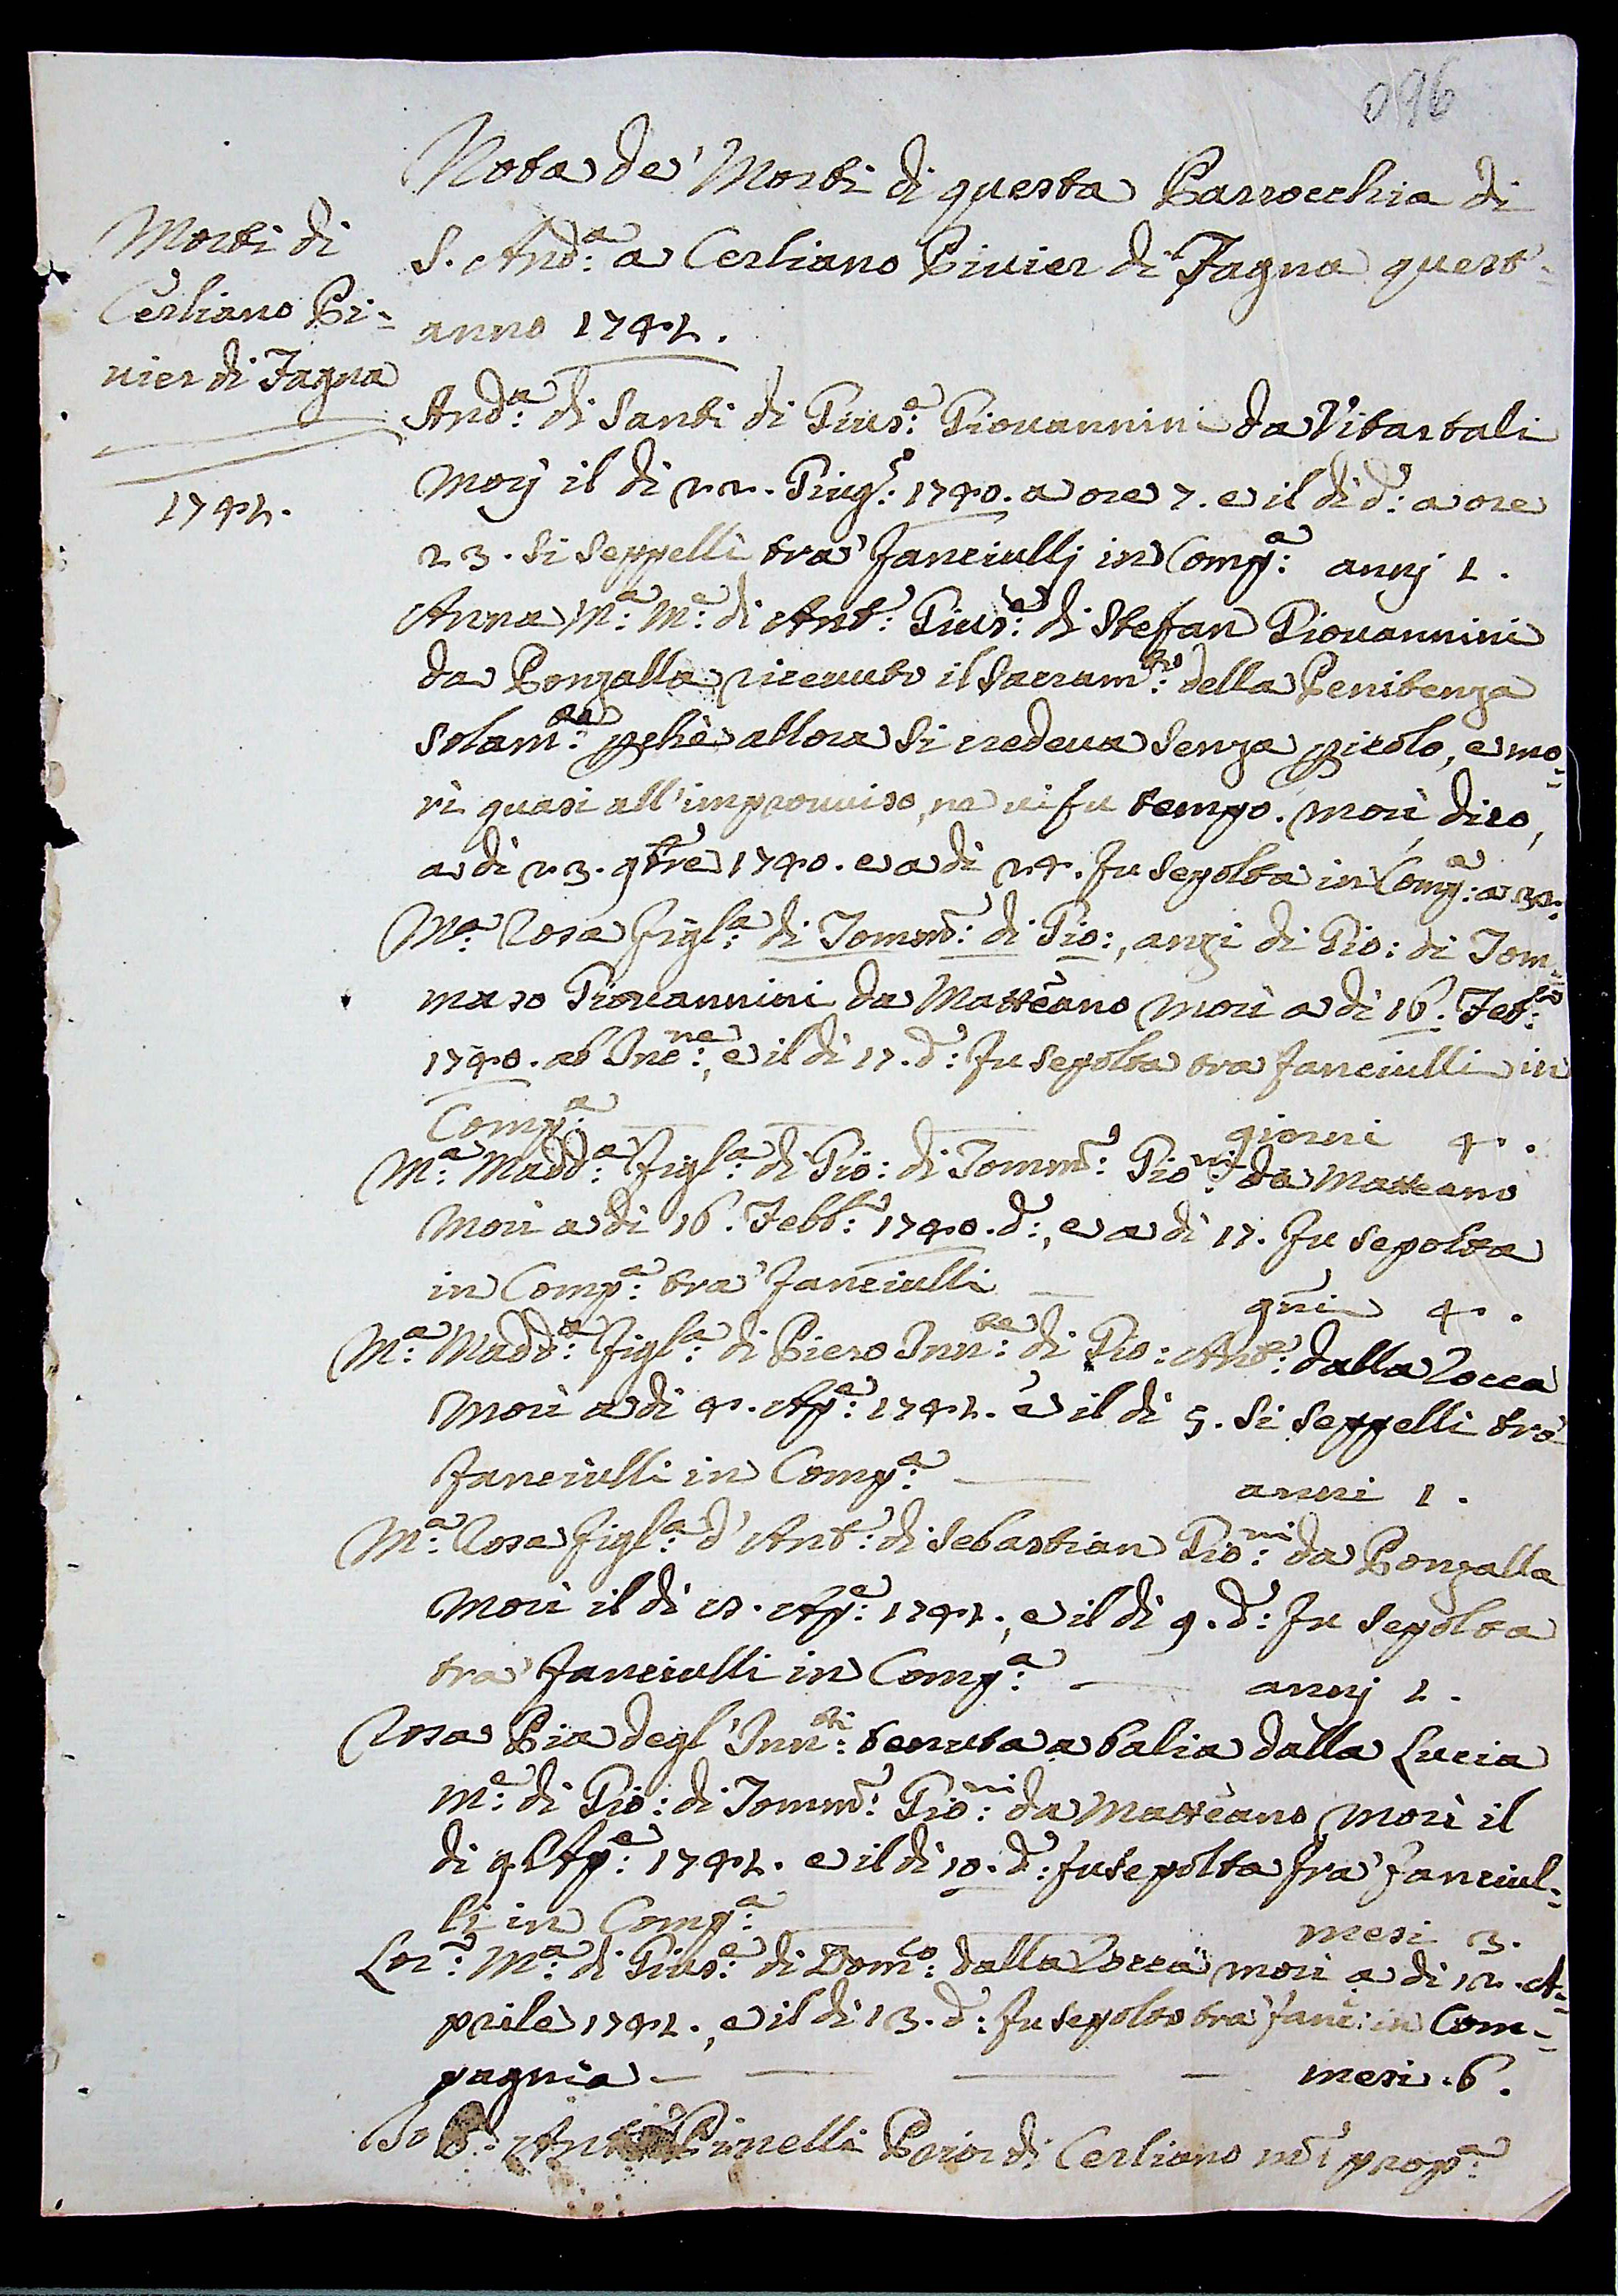 096
Morti di
Cerliano Pi=
vier di Fagna
1741.
Nota de' Morti di questa Parrocchia di
S. And:ª a Cerliano Pivier di Fagna quest'=
anno 1741.
And:ª di Santi di Gius:ᵉ Giovannini da Vitartali
Morì il dì 22. Giug:º 1740. a ore 7. e il dì d:º a ore
23. si seppellì tra' fanciullj in Comp:ª annj 1.
Anna M:ª M:ᵉ di Ant:º Gius:ᵉ di Stefan Giovannini
da Ponzalla ricevuto il Sacram:ᵗᵒ della Penitenza
solam:ᵗᵉ pchè allora si credeva senza picolo, e mo=
rì quasi all'improvviso, ne vi fu tempo. Morì, dico,
a dì 23. 9bre 1740. e a dì 24. fu sepolta in Comp:ª a 32.
M:ª Rosa figl:ª di Tomm:º di Gio:, anzi di Gio: di Tom=
maso Giovannini da Mattéano morì a dì 16. Feb:º
1740. ab Inc:ⁿᵉ, e il dì 17. d:º fu sepolta tra fanciulli in
Comp:ª giorni 4.
M:ª Madd:ª figl:ª di Gio: di Tomm:º Gio:ⁿⁱ da Matteano
Morì a dì 16. Febb:º 1740. d:º, e a dì 17. fu sepolta
in Comp:ª tra' fanciulli gni 4.
M:ª Madd:ª figl:ª di Piero Inn:ᵗᵉ di Gio: Ant:º dalla Rocca
Morì a dì 4. Ap:ᵉ 1741. e il dì 5. si seppellì tra'
fanciulli in Comp:ª anni 1.
M:ª Rosa figl:ª d'Ant:º di Sebastian Gio:ⁿⁱ da Ponzalla
Morì il dì 8. Ap:ᵉ 1741., e il dì 9. d:º fu sepolta
tra' fanciulli in Comp:ª annj 2.
Rosa Pia degl'Inn:ᵗⁱ tenuta a balia dalla Lucia
M:ᵉ di Gio: di Tomm:º Gio:ⁿⁱ da Mattéano morì il
dì 9 Ap:ᵉ 1741. e il dì 10. d:º fu sepolta fra' fanciul=
li in Comp:ª mesi 3.
Lor:º M:ª di Gius:ᵉ di Dom:ᶜᵒ dalla Rocca morì a dì 12. A=
prile 1741., e il dì 13. d:º fu sepolto tra' fanc: in Com=
pagnia mesi 6.
Io Ant:º Pinelli Prior di Cerliano mº prop:ª